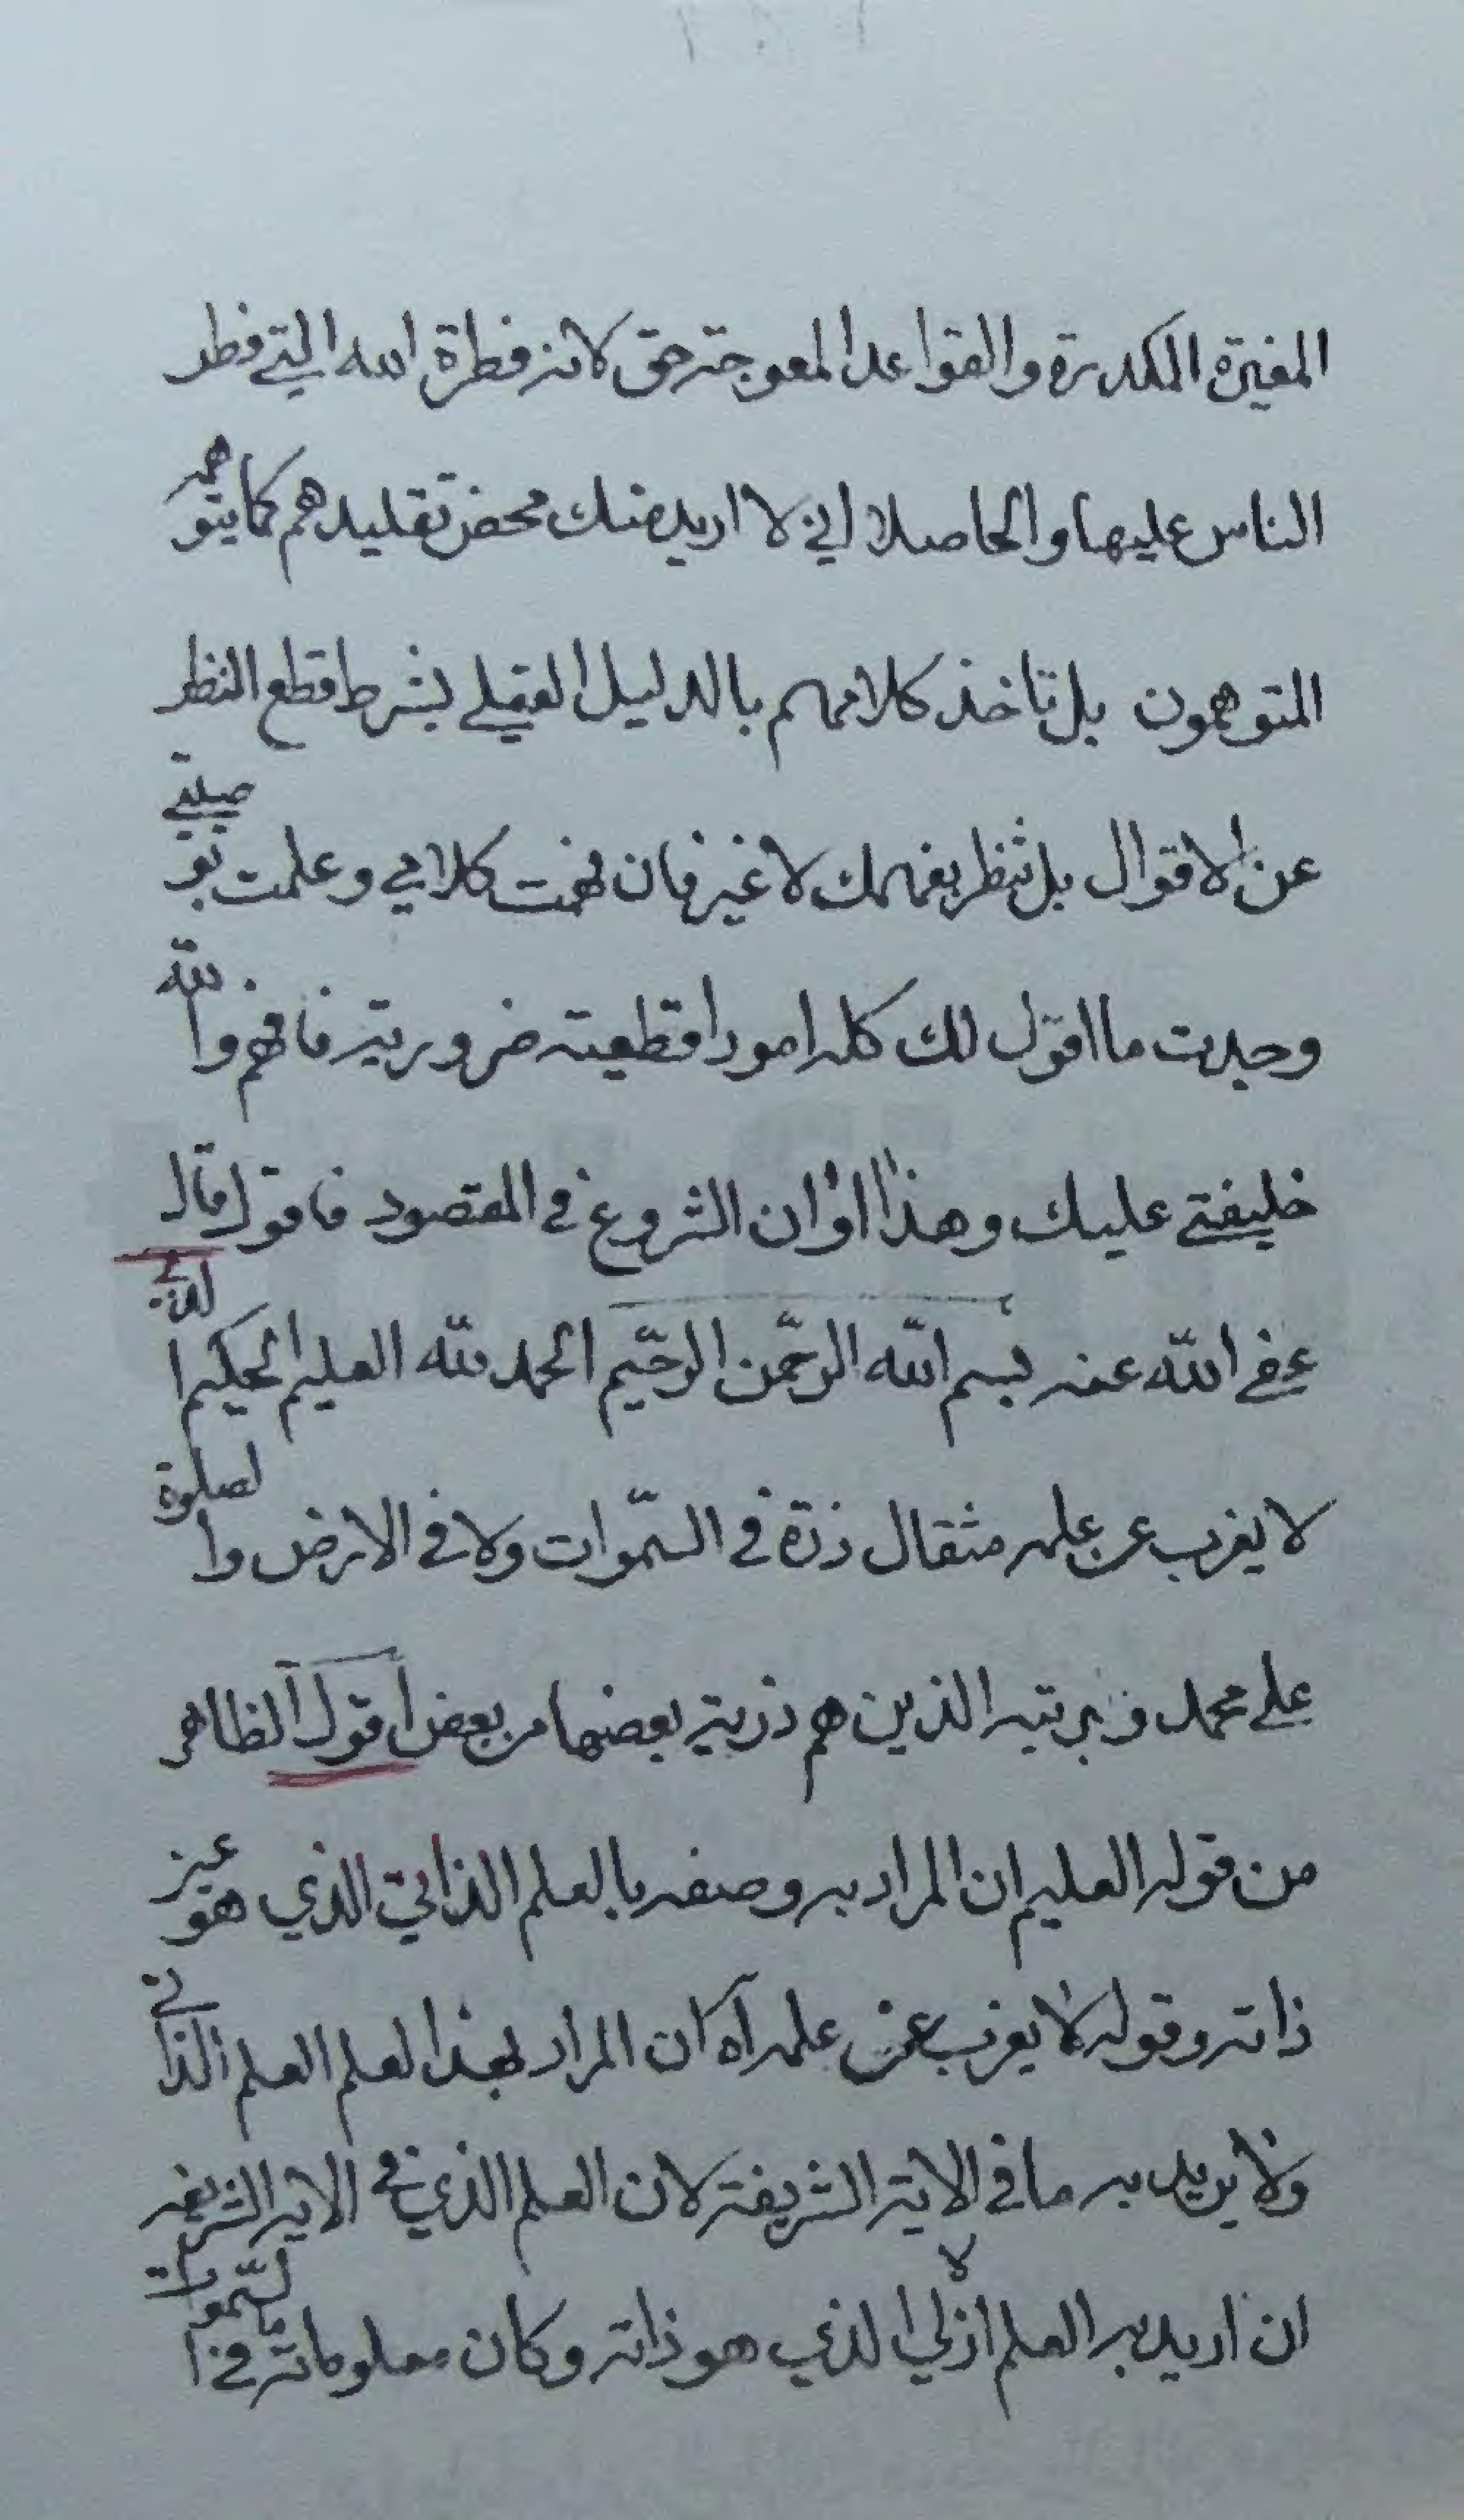 المغيرة المكدرة والقواعد المعوجة حتى كانه فطرة الله التي فطر
الناس عليها والحاصل اني لا اريد منك محض تقليدهم كما يتوهمه
المتوهمون بل تاخذ كلامهم بالدليل العقلي بشرط قطع النظر
عن الاقوال بل تنظر بفهمك لا غير فان فهمت كلامي وعلمت بوصيتي
وجدت ما اقول لك كله امورا قطعية ضرورية فافهم والله
خليفتي عليك وهذا اوان الشروع في المقصود فاقول قال
عفى الله عنه بسم الله الرحمن الرحيم الحمد لله العليم الحكيم الذي
لا يغرب عن علمه مثقال ذرة في السموات ولا في الارض والصلوة
على محمد وذريته الذين هم ذرية بعضها من بعض أقول الظاهر
من قوله العليم ان المراد به وصفه بالعلم الذاتي الذي هو عين
ذاته وقوله لا يغرب عن علمه آه ان المراد بهذا العلم العلم الذاتي
ولا يريد به ما في الاية الشريفة لان العلم الذي في الاية الشريفة
ان اريد به العلم الازلي الذي هو ذاته وكان معلوماته في السموات